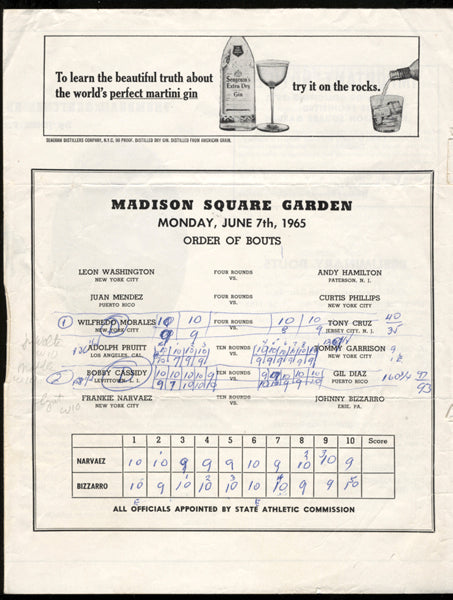 To learn the beautiful truth about
the world's perfect martini gin
Seagram's
Extra Dry
Gin
try it on the rocks.
SEAGRAM DISTILLERS COMPANY, N.Y.C. 90 PROOF. DISTILLED DRY GIN. DISTILLED FROM AMERICAN GRAIN.
MADISON SQUARE GARDEN
MONDAY, JUNE 7th, 1965
ORDER OF BOUTS
LEON WASHINGTON FOUR ROUNDS ANDY HAMILTON
NEW YORK CITY VS. PATERSON, N. J.
JUAN MENDEZ FOUR ROUNDS CURTIS PHILLIPS
PUERTO RICO VS. NEW YORK CITY
1 WILFREDO MORALES 10 10 FOUR ROUNDS 10 10 TONY CRUZ 40
NEW YORK CITY 9 9 VS. 8 9 JERSEY CITY, N. J. 35
ADOLPH PRUITT TEN ROUNDS TOMMY GARRISON
LOS ANGELES, CAL. VS. NEW YORK CITY
2 BOBBY CASSIDY 10 10 10 10 9 TEN ROUNDS GIL DIAZ 160
LEVITTOWN, L. I. 9 7 10 10 9 VS. PUERTO RICO 93
FRANKIE NARVAEZ TEN ROUNDS JOHNNY BIZZARRO
NEW YORK CITY VS. ERIE, PA.
1 2 3 4 5 6 7 8 9 10 Score
NARVAEZ 10 10 9 9 9 10 9 10 10 9
BIZZARRO 10 9 10 10 10 10 10 9 9 10
ALL OFFICIALS APPOINTED BY STATE ATHLETIC COMMISSION